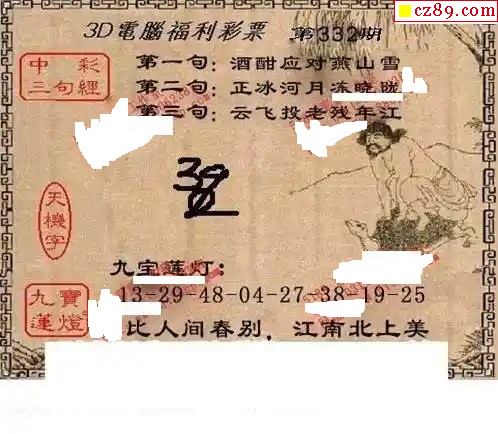 cz89.com
3D電腦福利彩票 第332期
中彩
三句經
第一句：酒酣应对燕山雪
第二句：正冰河月冻晓陇
第三句：云飞投老残年江
天機字
九宝莲灯：
九寶
蓮燈
13-29-48-04-27-38-19-25
比人间春别，江南北上美